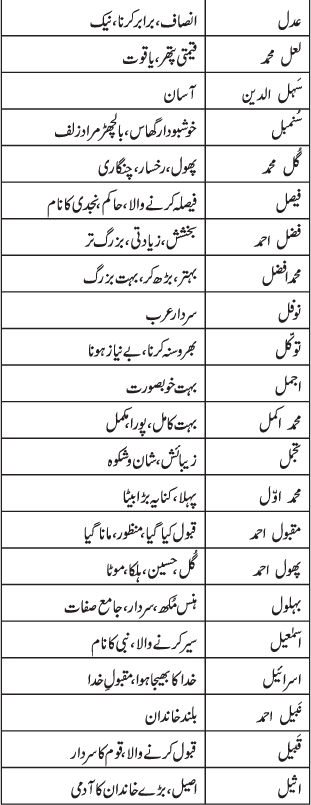 عدل انصاف، برابر کرنا، نیک
لعل محمد قیمتی پتھر، یاقوت
سَہل الدین آسان
سُنمبل خوشبودار گھاس، بالچھڑ مراد زلف
گُل محمد پھول، رخسار، چنگاری
فیصل فیصلہ کرنے والا، حاکم نجدی کا نام
فضل احمد بخشش، زیادتی، بزرگ تر
محمد افضل بہتر، بڑھ کر، بہت بزرگ
نوفل سردار عرب
توکّل بھروسہ کرنا، بے نیاز ہونا
اجمل بہت خوبصورت
محمد اکمل بہت کامل، پورا، مکمل
تجمّل زیبائش، شان و شکوہ
محمد اوّل پہلا، کنایہ بڑا بیٹا
مقبول احمد قبول کیا گیا، منظور، مانا گیا
پھول احمد گُل، حسین، ہلکا، موٹا
بہلول ہنس مُکھ، سردار، جامع صفات
اسمٰعیل سیر کرنے والا، نبی کا نام
اسرائیل خدا کا بھیجا ہوا، مقبولِ خدا
نَبیل احمد بلند خاندان
قَبیل قبول کرنے والا، قوم کا سردار
اثیل اصیل، بڑے خاندان کا آدمی